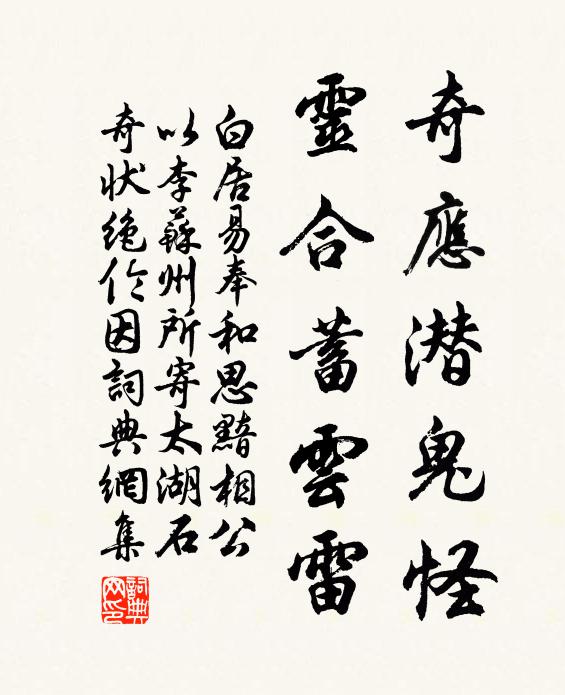 奇應潛鬼怪
靈合蓄雲雷
白居易奉和思黯相公
以李蘇州所寄太湖石
奇狀絶伦因詞典網集
詞典網印